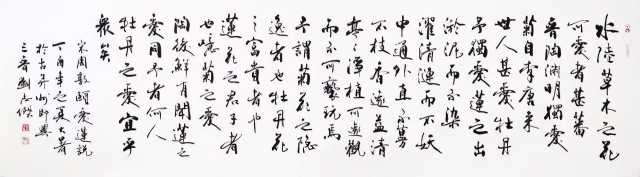 水陸草木之花
可愛者甚蕃
晉陶淵明獨愛
菊自李唐來
世人甚愛牡丹
予獨愛蓮之出
淤泥而不染
濯清漣而不妖
中通外直不蔓
不枝香遠益清
亭亭淨植可遠觀
而不可褻玩焉
予謂菊花之隱
逸者也牡丹花
之富貴者也
蓮花之君子者
也噫菊之愛
陶後鮮有聞蓮之
愛同予者何人
牡丹之愛宜乎
衆矣
宋周敦頤愛蓮說
丁酉年之夏大暑
於古并州即興
三晉劉